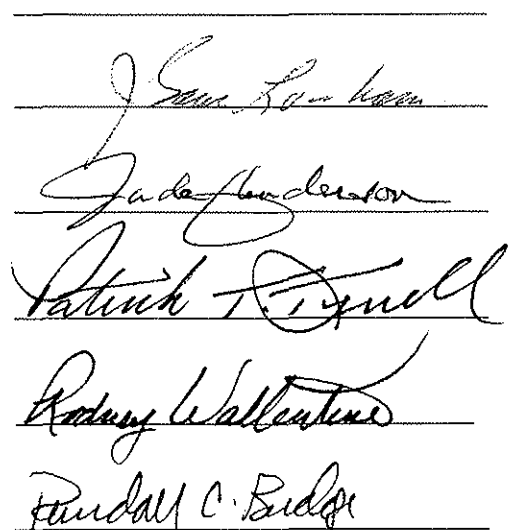 J Lanham
Jade Henderson
Patrick T. Tyrrell
Rodney Wallentine
Randall C. Budge